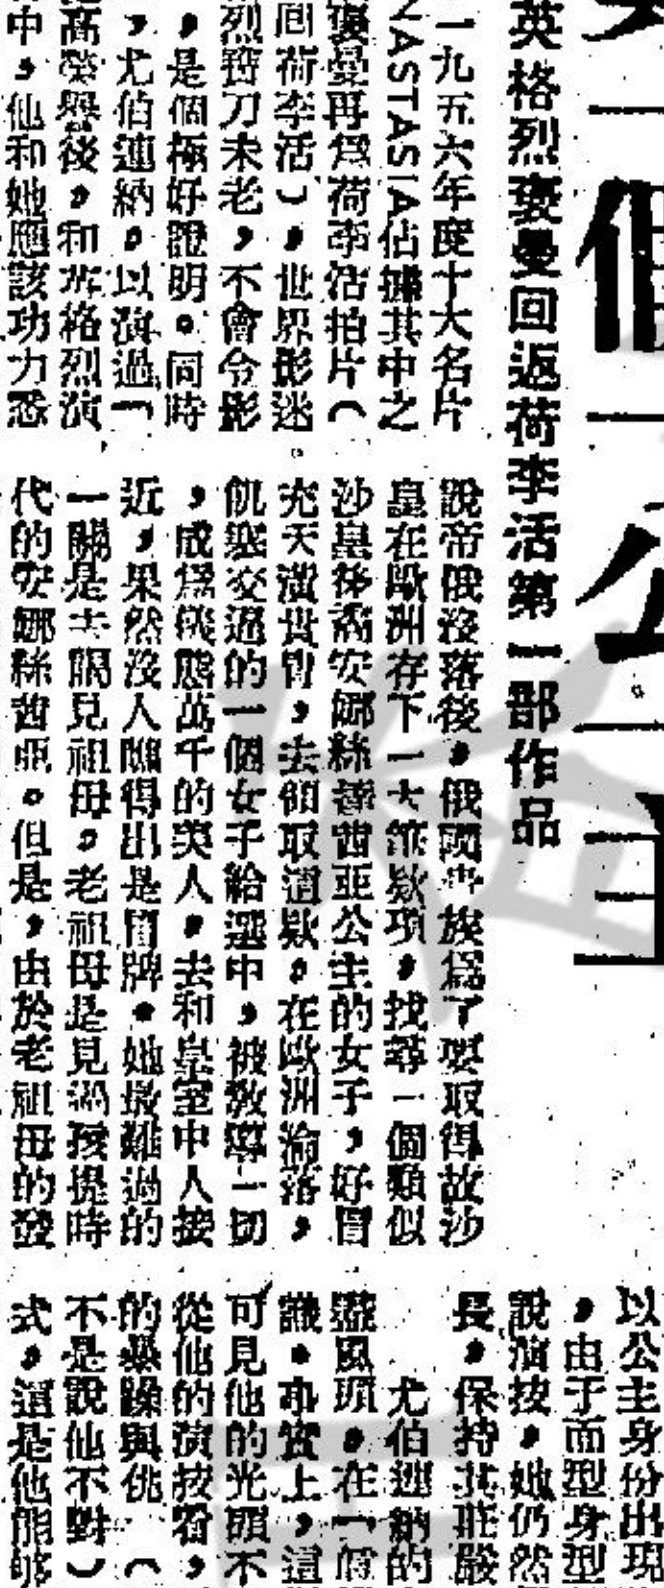 假公主
英格烈褒曼回返荷李活第一部作品
一九五六年度十大名片
NASTASIA佔據其中之
褒曼再為荷李活拍片（
囘荷李活），世界影迷
烈寶刀未老，不會令影
，是個極好證明。同時
，尤伯連納，以演過「
高榮譽後，和英格烈演
中，他和她應該功力悉
說帝俄沒落後，俄國貴族爲了要取得故沙
皇在歐洲存下一大筆欵項，找尋一個類似
沙皇後裔安娜絲達茜亞公主的女子，好冒
充天潢貴胄，去領取這欵。在歐洲淪落，
飢寒交逼的一個女子給選中，被敎導一切
，成爲儀態萬千的美人，去和皇室中人接
近，果然沒人瞧得出是冒牌。她最難過的
一關是去謁見祖母。老祖母是見過孩提時
代的安娜絲茜亞。但是，由於老祖母的發
以公主身份出現
，由于面型身型
說演技，她仍然
長，保持其莊嚴
尤伯連納的
盡風頭，在「
識。事實上，這
可見他的光頭不
從他的演技看，
的暴躁與佻（
不是說他不對）
式，這是他能够